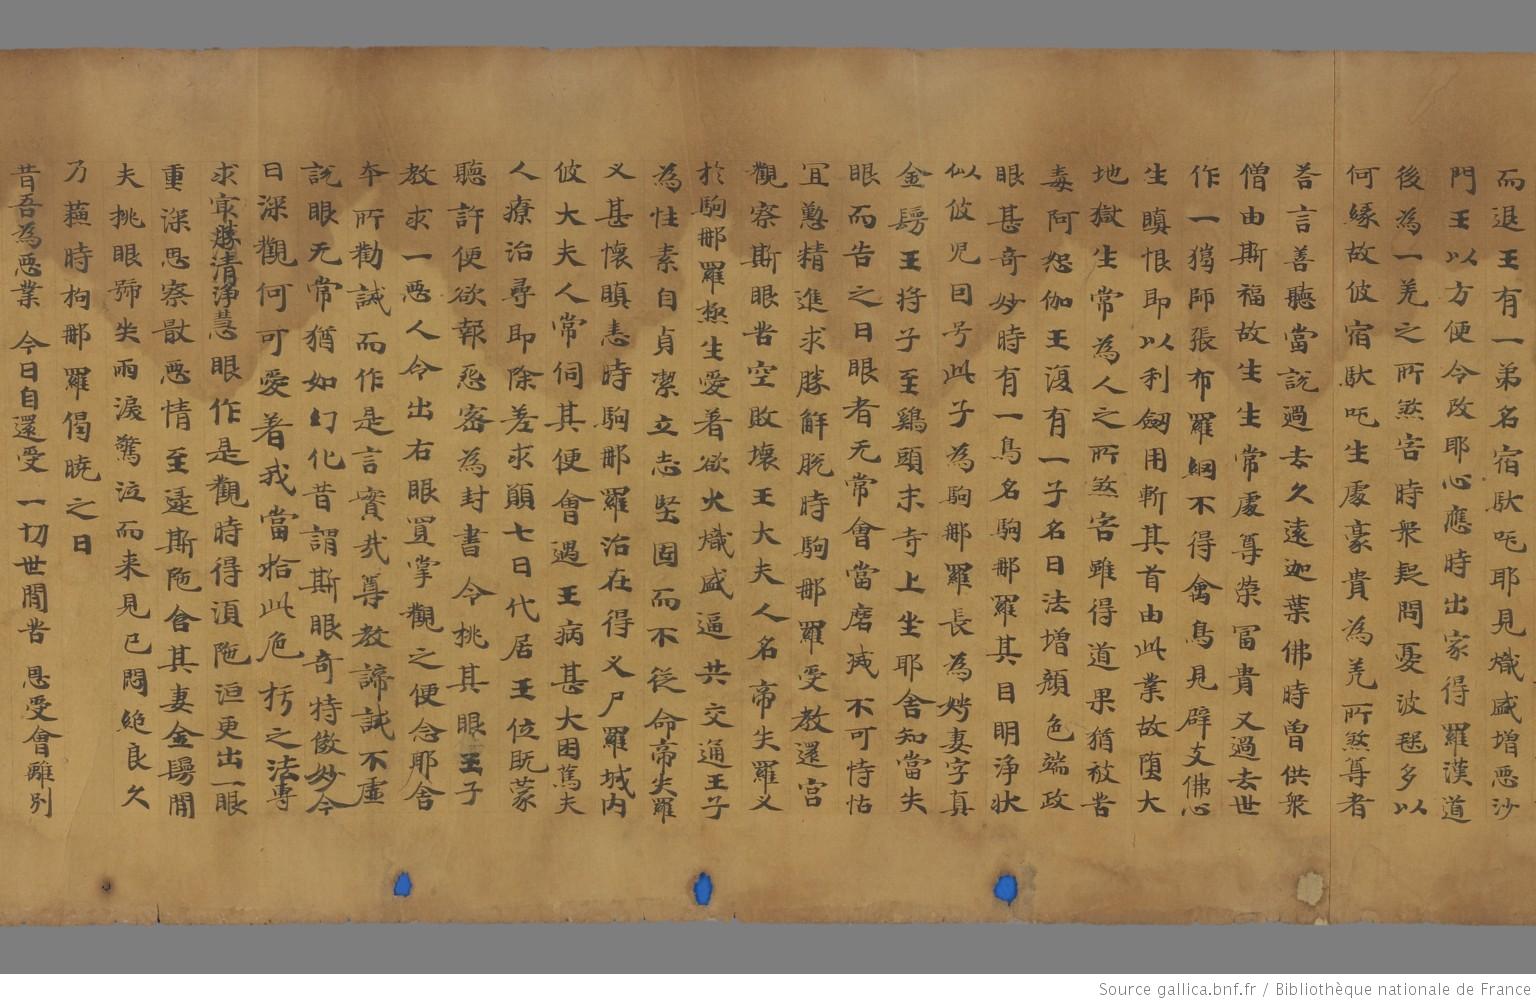 而退王有一弟名宿馱吒耶見熾盛增惡沙
門王以方便令改耶心應時出家得羅漢道
後為一羌之所煞害時衆起問憂波毱多以
何緣故彼宿馱吒生處豪貴為羌所煞尊者
荅言善聽當說過去久遠迦葉佛時曽供衆
僧由斯福故生生常處尊榮冨貴又過去世
作一獦師張布羅網不得禽鳥見辟支佛心
生瞋恨即以利劒用斬其首由此業故堕大
地獄生常為人之所煞害雖得道果猶被苦
毒阿恕伽王復有一子名曰法增顏色端政
眼甚奇妙時有一鳥名駒那羅其目明淨狀
似彼兒因号此子為駒那羅長為娉妻字真
金鬘王将子至鷄頭末寺上坐耶舍知當失
眼而告之曰眼者无常會當磨滅不可恃怙
冝懃精進求勝解脫時駒那羅受教還宫
觀察斯眼苦空敗壞王大夫人名帝失羅义
於駒那羅㮣生愛著欲火熾盛逼共交通王子
為性素自貞潔立志堅固而不從命帝失羅
义甚懷瞋恚時駒那羅治在得义尸羅城內
彼大夫人常伺其便會遇王病甚大困篤夫
人療治尋即除差求願七日代居王位既蒙
聽許便欲報惡密為封書令挑其眼王子
教求一惡人今出右眼買掌觀之便念耶舍
夲所勸誡而作是言實哉尊教諦誠不虛
說眼无常猶如幻化昔謂斯眼奇特俊妙今
日深觀何可愛著我當捨此危朽之法專
求㝡勝清淨慧眼作是觀時得湏陁洹更出一眼
重深思察猒惡情至逮斯陁含其妻金鬘聞
夫挑眼號失雨淚驚泣而来見已悶絶良久
乃蘓時拘那羅偈曉之曰
昔吾為惡業 今日自還受 一切世間苦 恩受會離别